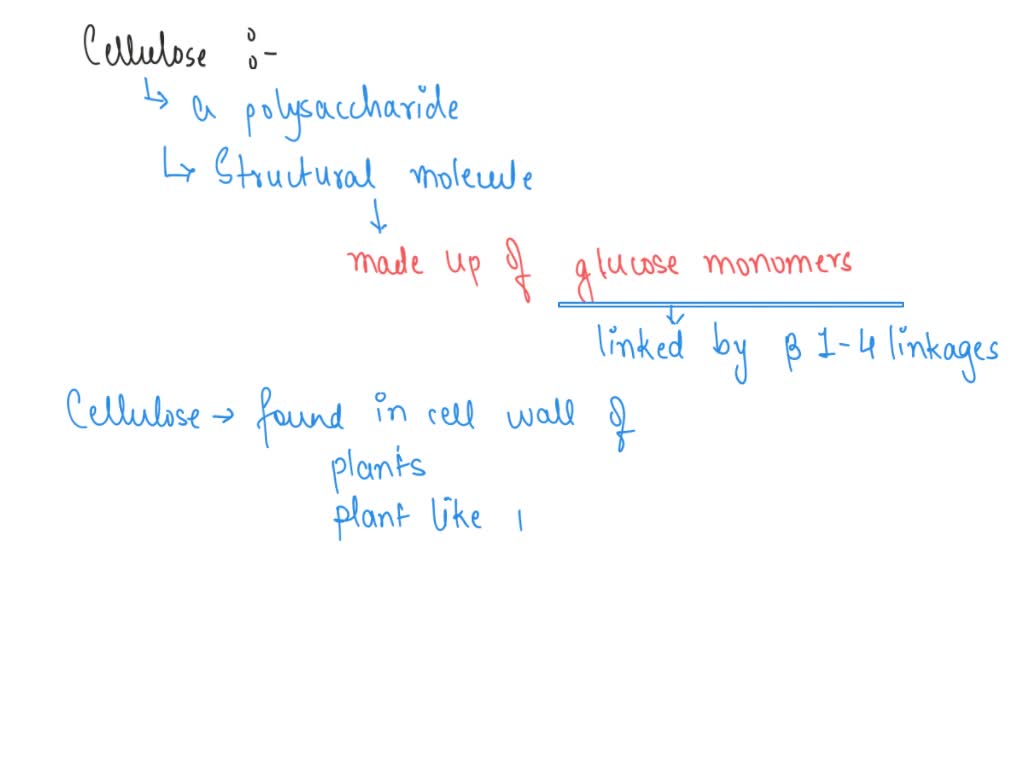 Cellulose :-
↳ a polysaccharide
↳ Structural molecule
↓
made up of glucose monomers
↓
linked by β 1-4 linkages
Cellulose → found in cell wall of
plants
plant like